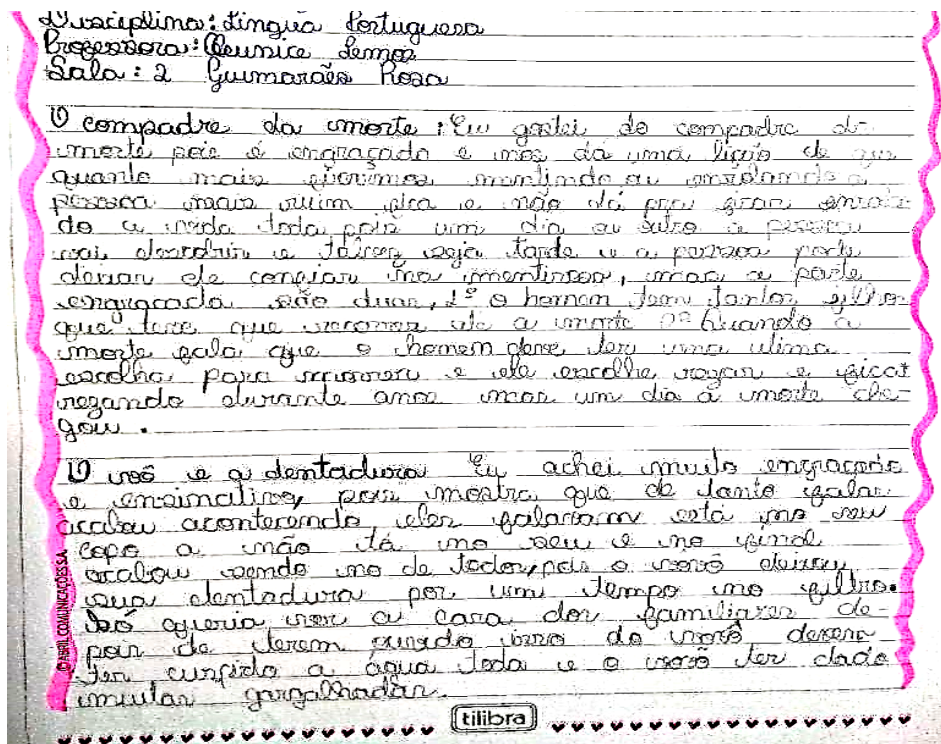 Disciplina: Língua Portuguesa
Professora: Cleunice Lemos
Sala: 2 Guimarães Rosa
O compadre da morte: Eu gostei do compadre da
morte pois é engraçado e nos dá uma lição de que
quanto mais ficarmos mentindo ou enrolando a
pessoa mais ruim fica e não dá pra ficar
do a vida toda pois um dia ou outro a pessoa
vai descobrir e talvez seja tarde e a pessoa pode
deixar de confiar no mentiroso, mas a parte
engraçada são duas, 1º o homem tem tantos filhos
que teve que recorrer até a morte 2º Quando a
morte fala que o homem deve ter uma ultima
escolha para morrer e ele escolhe rezar e ficar
rezando durante anos mas um dia a morte che-
gou.
O vovô e a dentadura Eu achei muito engraçado
e ensinativo, pois mostra que de tanto falar
acabou acontecendo, eles falavam está no seu
copo a não tá no seu e no final
acabou sendo no de todos, pois o vovô deixou
sua dentadura por um tempo no filtro.
Só queria ver a cara dos familiares de-
pois de terem isso do vovô
ter cuspido a água toda e o vovô ter dado
muitas gargalhadas.
©ABRIL COMUNICAÇÕES S.A.
tilibra